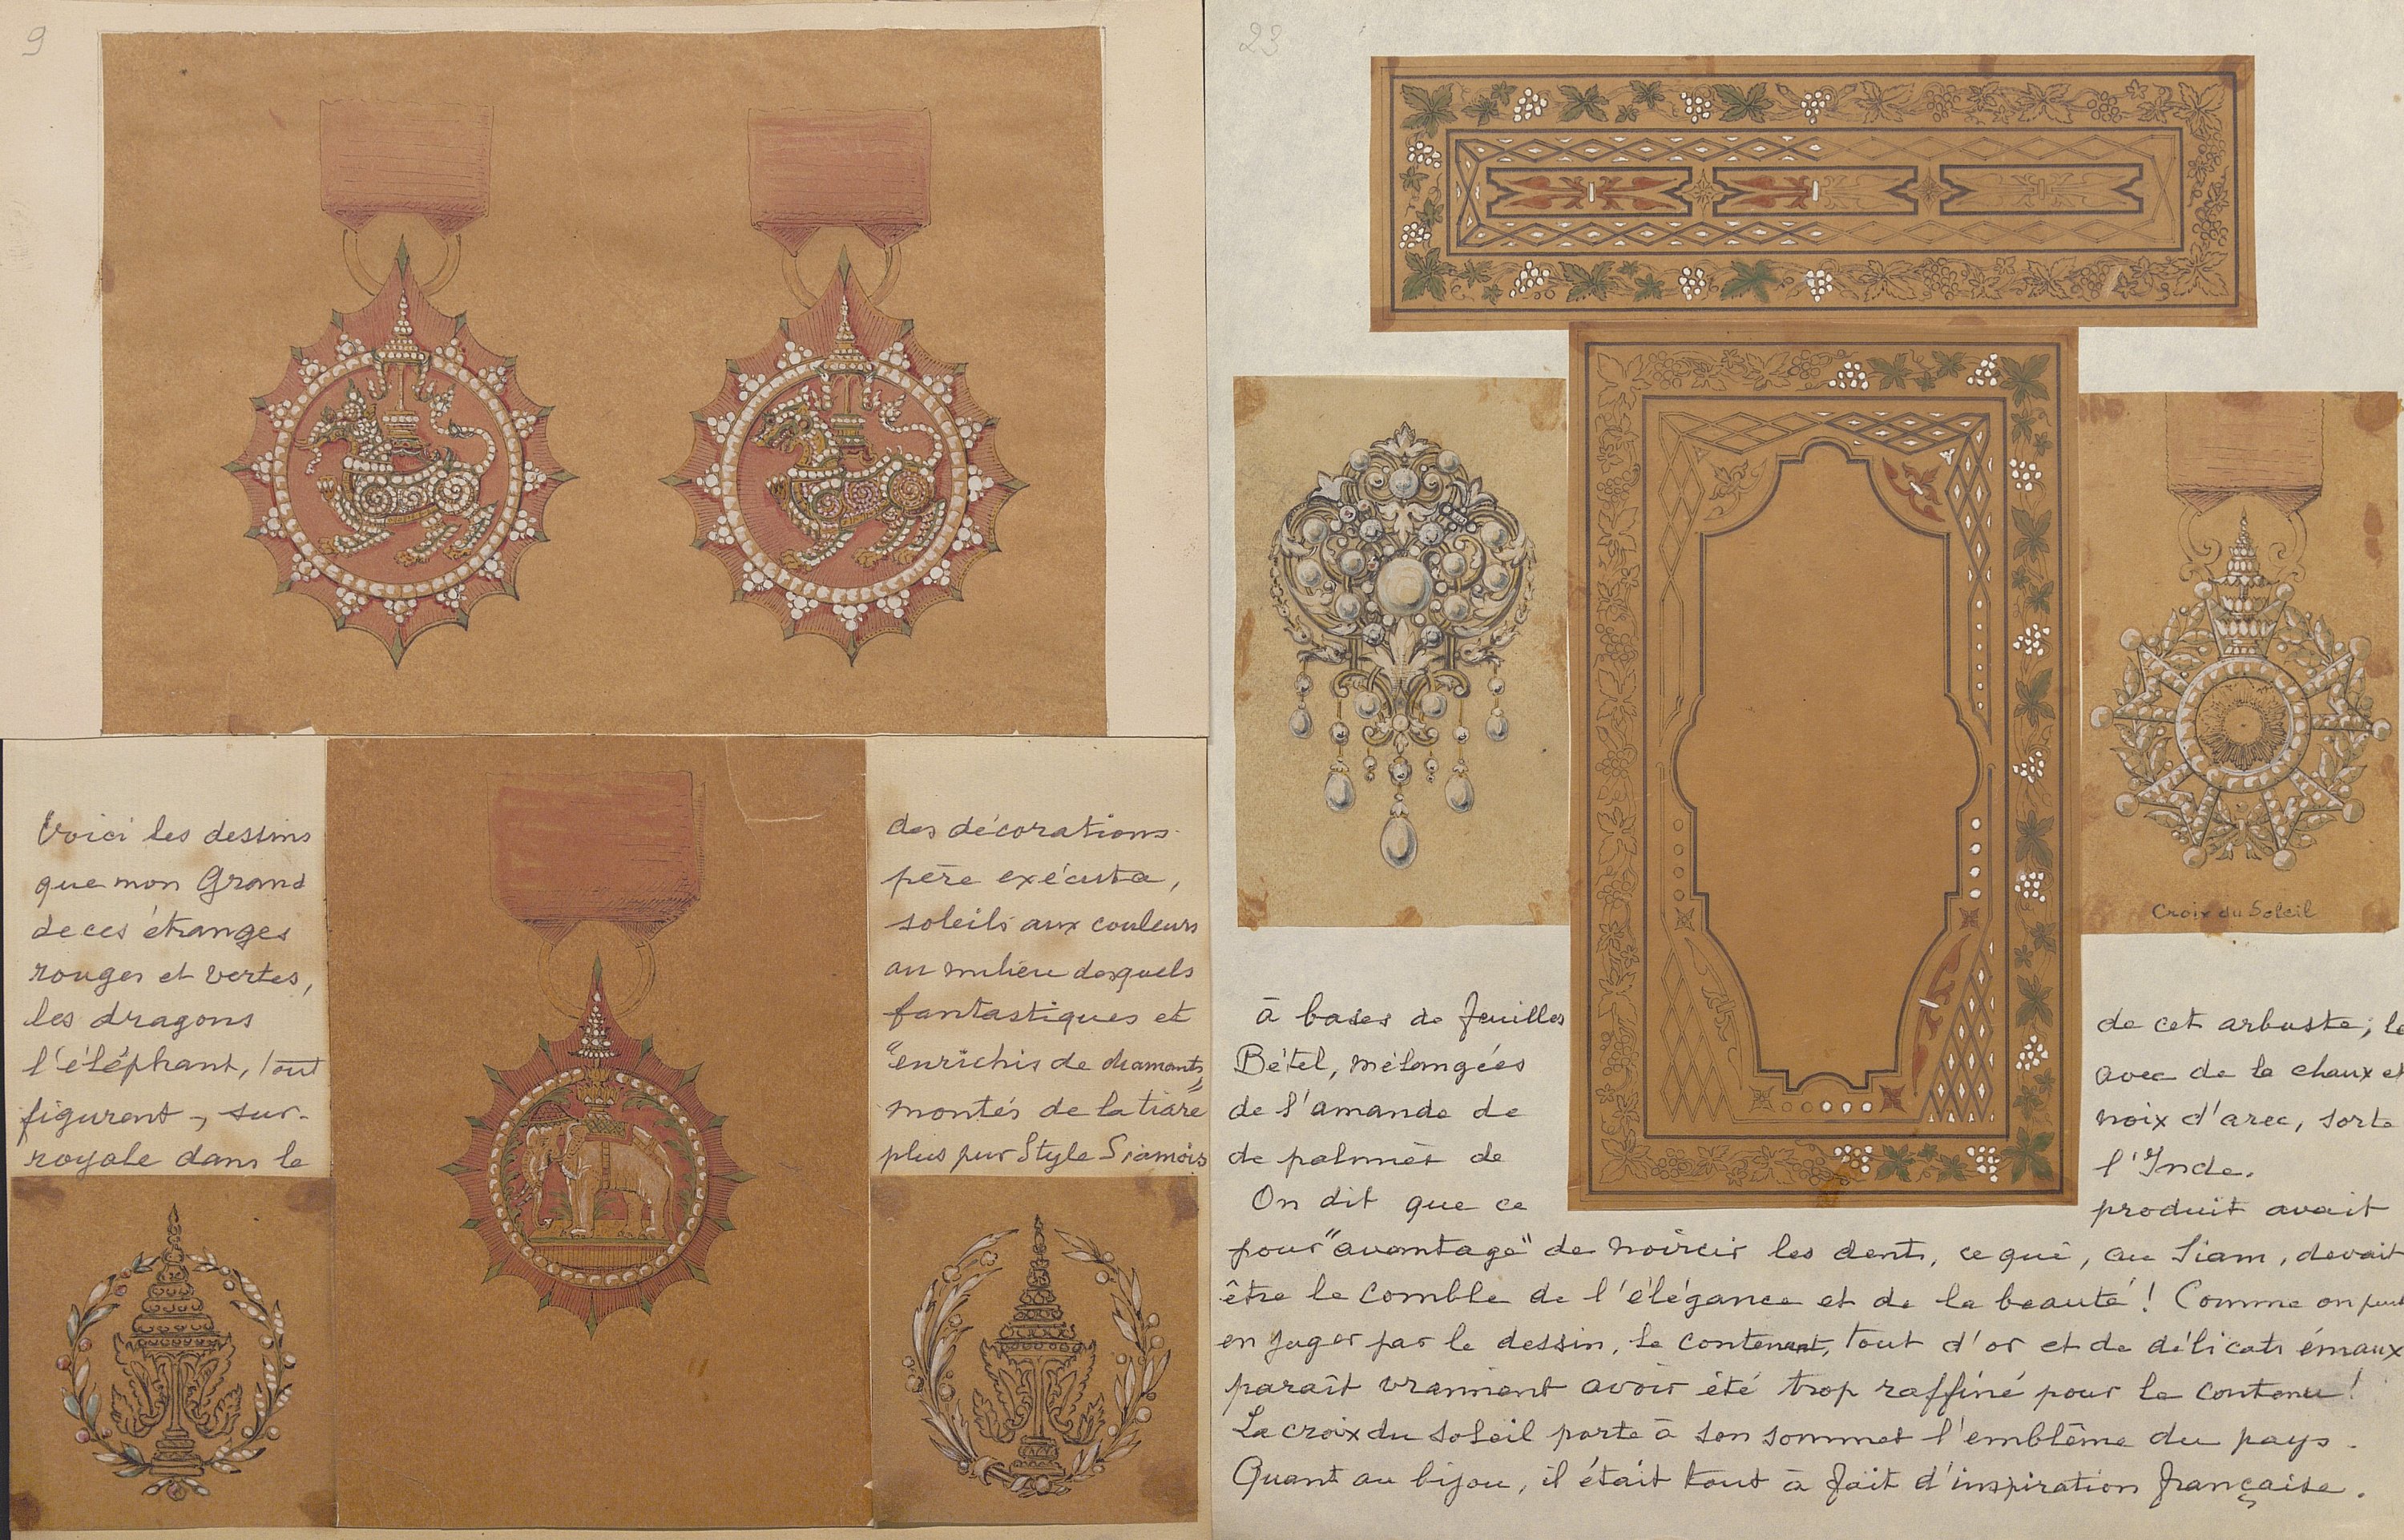 9
Voici les dessins des décorations
que mon Grand père exécuta,
de ces étranges soleils aux couleurs
rouges et vertes, au milieu desquels
les dragons fantastiques et
l'éléphant, tout "enrichis de diamants"
figurent, sur- montés de la tiare
royale dans le plus pur Style Siamois
23
Croix du Soleil
à bases de feuilles de cet arbuste, le
Bétel, mélangées avec de la chaux et
de l'amande de noix d'arec, sorte
de palmier de l'Inde.
On dit que ce produit avait
pour "avantage" de noircir les dents, ce qui, au Siam, devait
être le comble de l'élégance et de la beauté! Comme on peut
en juger par le dessin, le contenant, tout d'or et de délicats émaux
paraît vraiment avoir été trop raffiné pour le contenu!
La croix du soleil porte à son sommet l'emblême du pays.
Quant au bijou, il était tout à fait d'inspiration française.